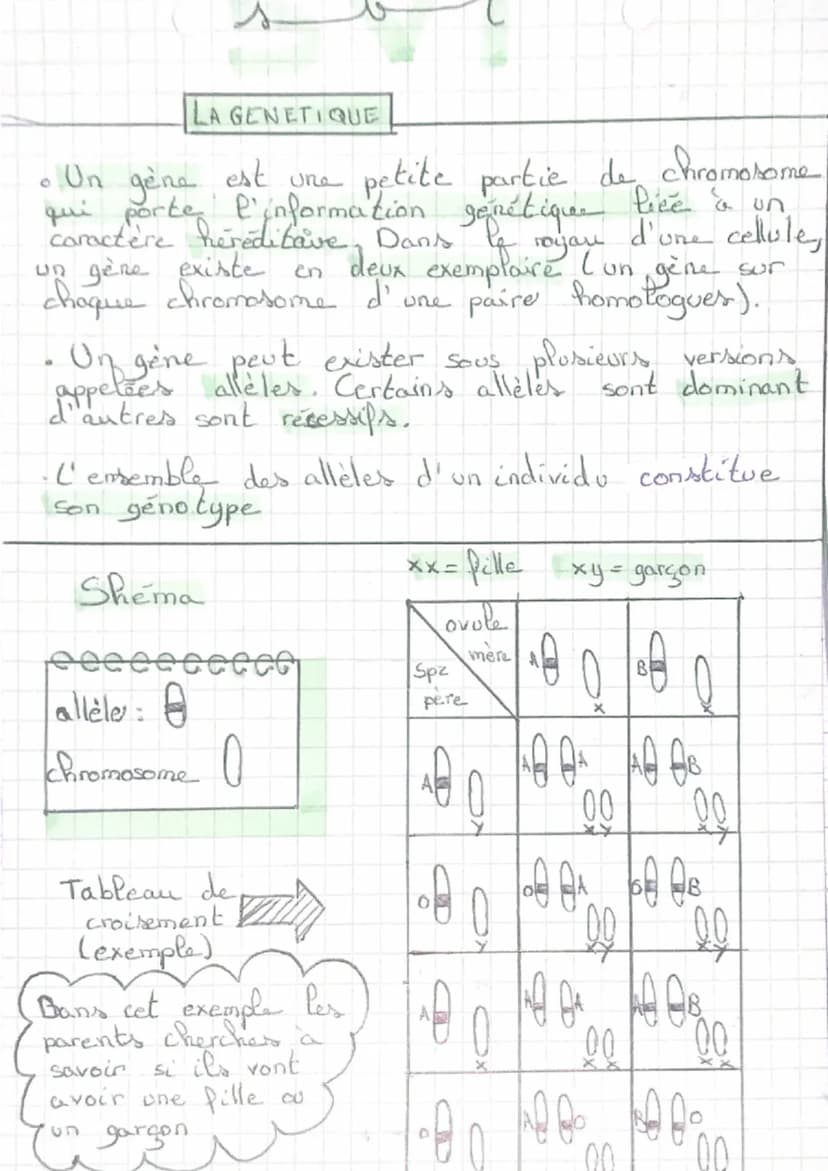 S V T
LA GENETIQUE
• Un gène est une petite partie de chromosome
qui porte l'information génétique liée à un
caractère héréditaire. Dans le noyau d'une cellule,
un gène existe en deux exemplaire (un gène sur
chaque chromosome d'une paire homologues).
• Un gène peut exister sous plusieurs versions
appelées allèles. Certains allèles sont dominant
d'autres sont récessifs.
. L'ensemble des allèles d'un individu constitue
son génotype
xx = fille xy = garçon
Shéma
allèle :
chromosome
ovule
mère
Spz
père
A x B x
A y A A x y A B x y
O y O A x y O B x y
A x A A x x A B x x
O A O B O
Tableau de
croisement
(exemple)
Dans cet exemple les
parents cherches à
savoir si ils vont
avoir une fille ou
un garçon